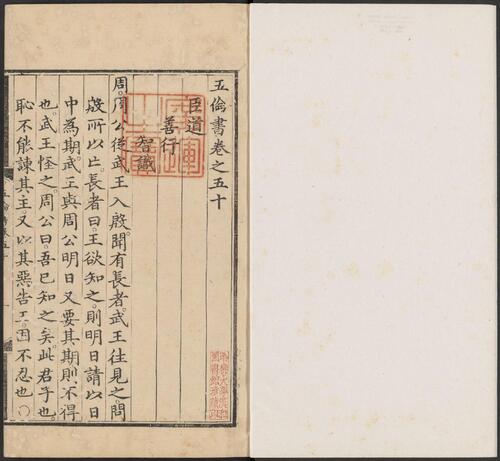 哈佛大學漢和
圖書館珍藏印
五倫書卷之五十
臣道
善行
智識
廣運
之寶
周。周公從武王入殷。聞有長者。武王往見之。問
殷所以亡。長者曰。王欲知之。則明日請以日
中為期。武王與周公明日又要其期。則不得
也。武王怪之。周公曰。吾已知之矣。此君子也。
恥不能諫其主。又以其惡告王。固不忍也。〇